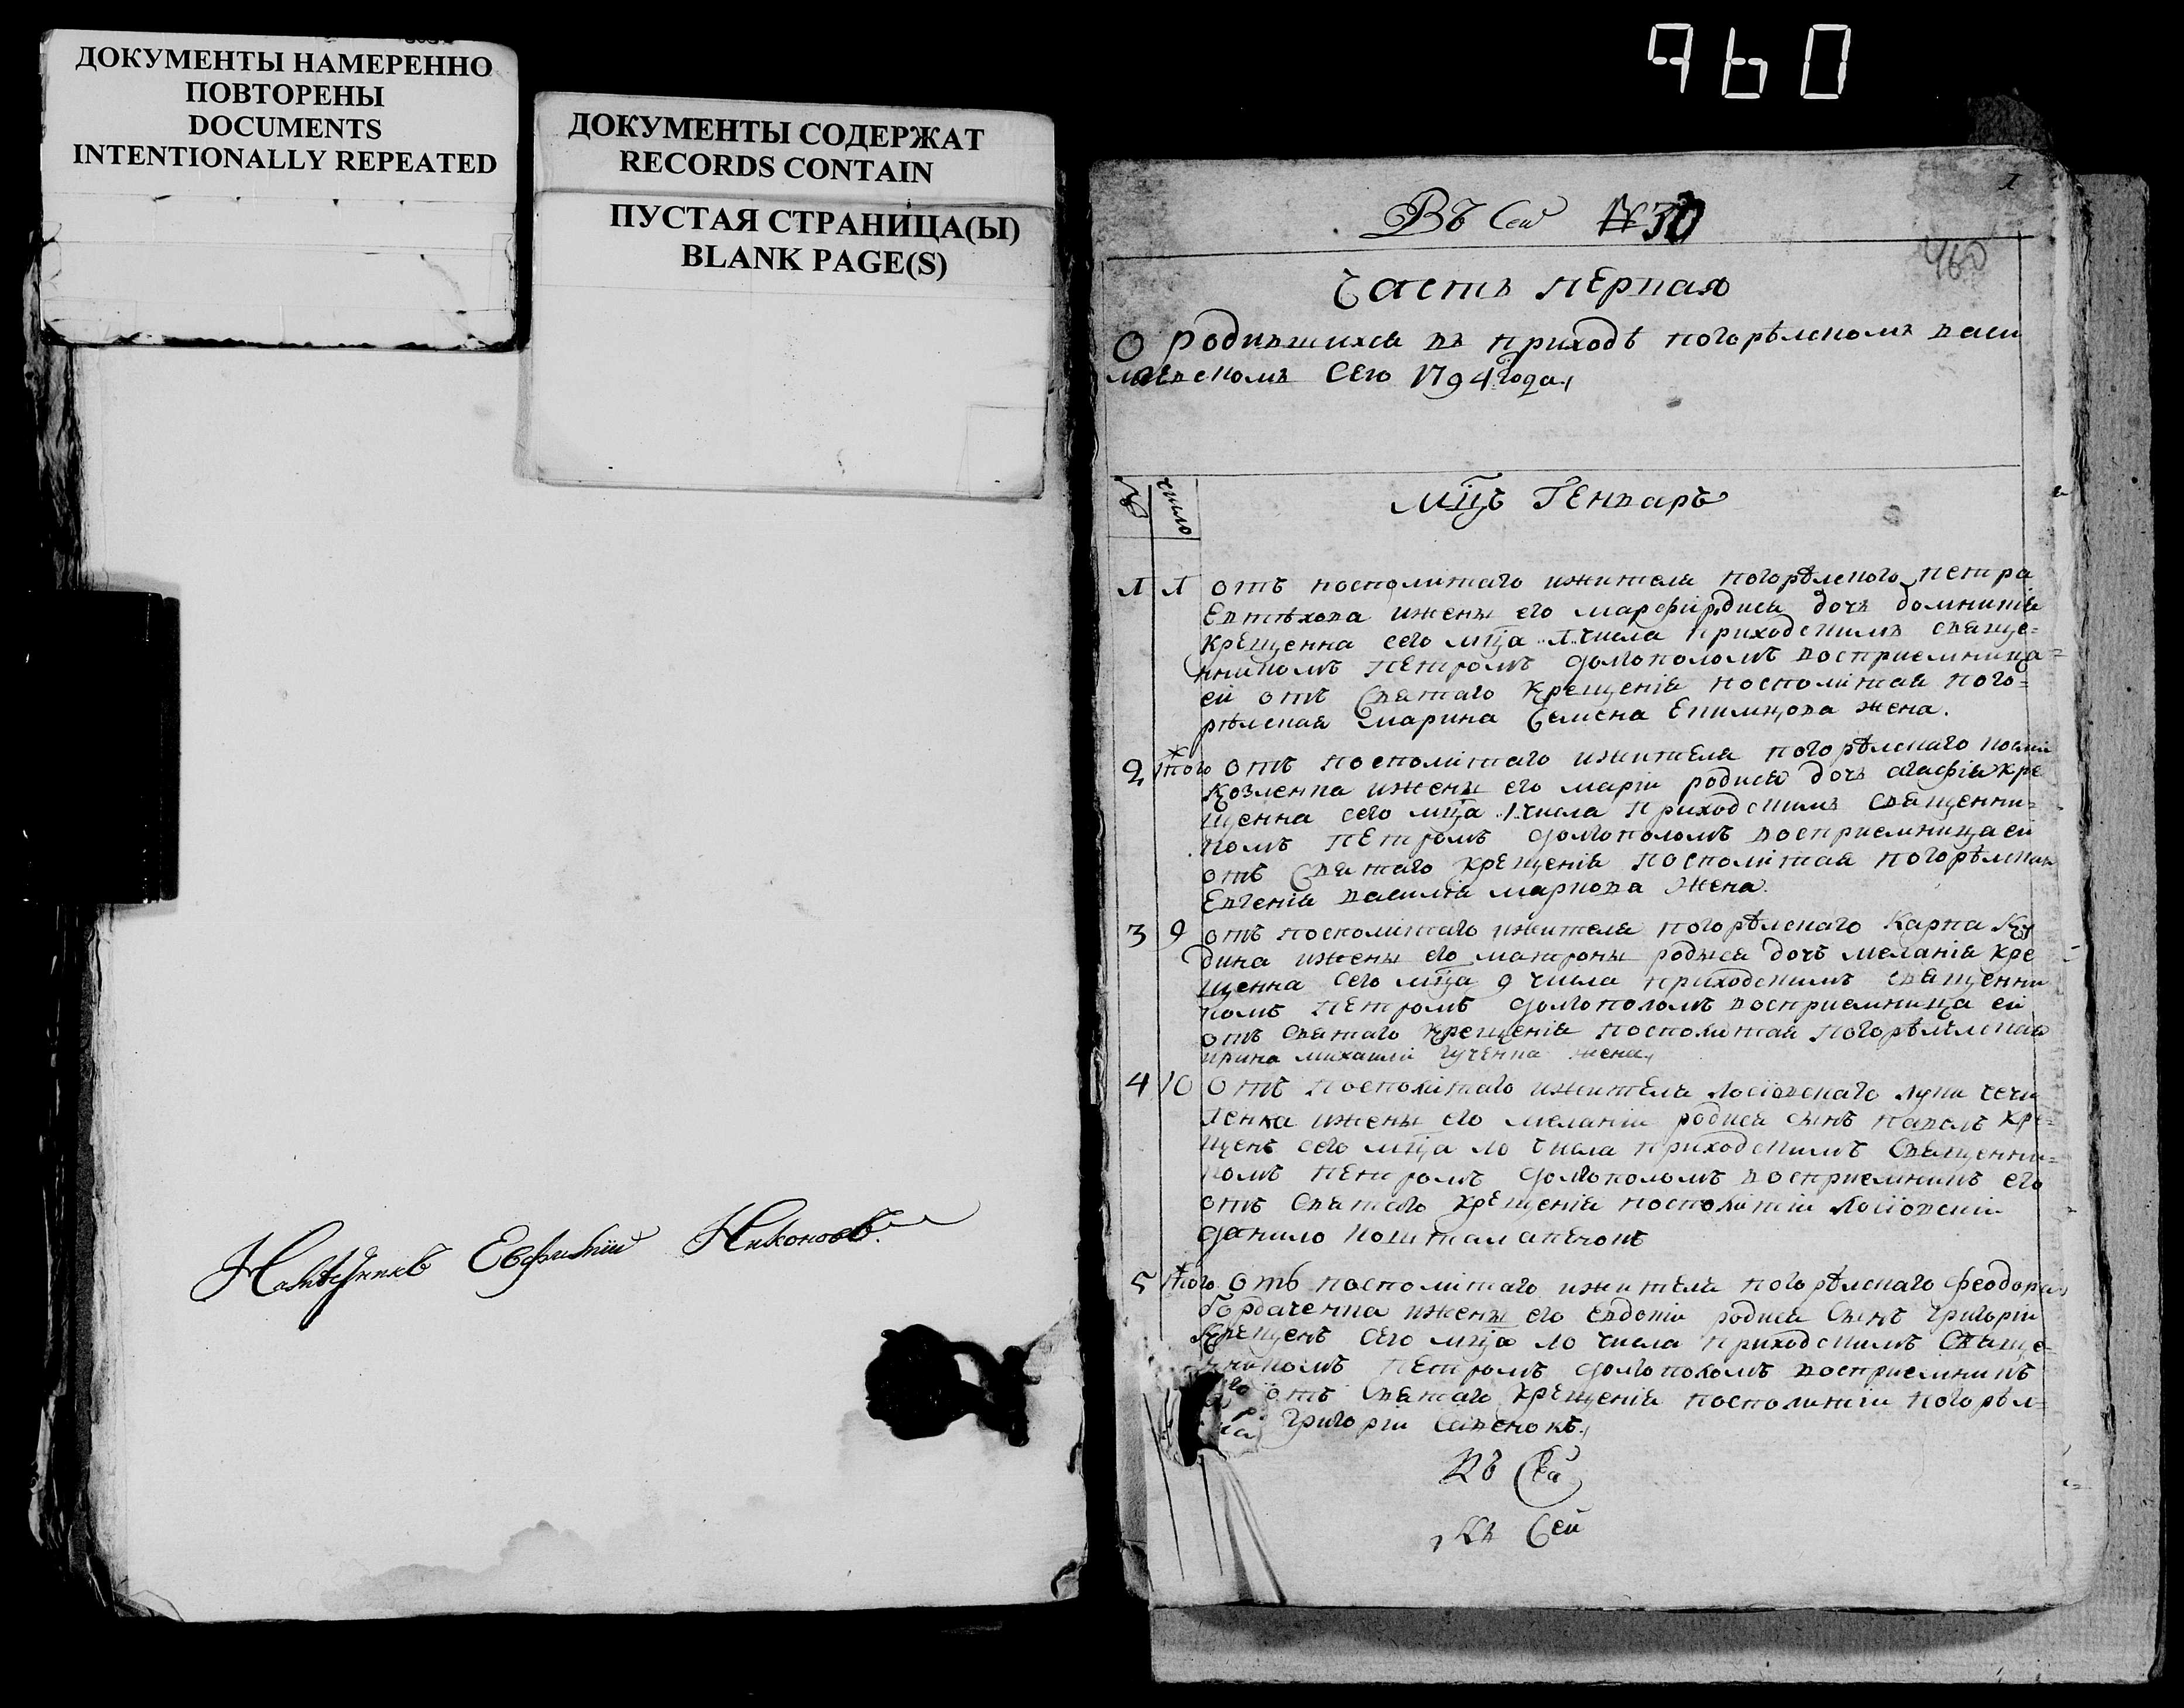 960
ДОКУМЕНТЫ НАМЕРЕННО
ПОВТОРЕНЫ
DOCUMENTS
INTENTIONALLY REPEATED
ДОКУМЕНТЫ СОДЕРЖАТ
RECORDS CONTAIN
ПУСТАЯ СТРАНИЦА(Ы)
BLANK PAGE(S)
Евфимий Никоновъ.
1
Въ сей №30
460
Часть первая
О родившихся въ приходѣ погорѣлскомъ васи
лиевскомъ сего 1794 года
число
Мцъ Генваръ
1 1 отъ посполитаго ижителя погорѣлского петра
Евтѣхова ижены его марфи родися дочь домникія
крещенна сего мца 1 числа приходскимъ свяще=
нникомъ петромъ долгополомъ восприемница=
ей отъ святаго крещенія посполитая пого=
рѣлская марина семена жена.
2 того отъ посполитаго ижителя погорѣлскаго
козленка ижены его маріи родися дочь агафія кре
щенна сего мца 1 числа приходскимъ священни=
комъ петромъ долгополомъ восприемница ей
отъ святаго крещенія посполитая погорѣлская
Евгенія василія маркова жена.
3 9 отъ посполитаго ижителя погорѣлскаго Карпа Ку
дина ижены его матроны родися дочь меланія кре
щенна сего мца 9 числа приходскимъ священни
комъ петромъ долгополомъ восприемница ей
отъ святаго крещенія посполитая
ирина михаила гученка жена
4 10 отъ посполитаго ижителя лосіовскаго луки
ленка ижены его меланіи родися сынъ павелъ кре=
щенъ сего мца 10 числа приходскимъ священни=
комъ петромъ долгополомъ восприемникъ его
отъ святаго крещенія посполитіи лосіовскіи
данило
5 того отъ посполитаго ижителя погорѣлскаго феодора
Горбаченка ижены его евдокіи родися сынъ григоріи
Крещенъ сего мца 10 числа приходскимъ свяще=
нникомъ петромъ долгополомъ восприемникъ
его отъ святаго крещенія посполитіи погорѣл=
григоріи савенокъ
Въ сей